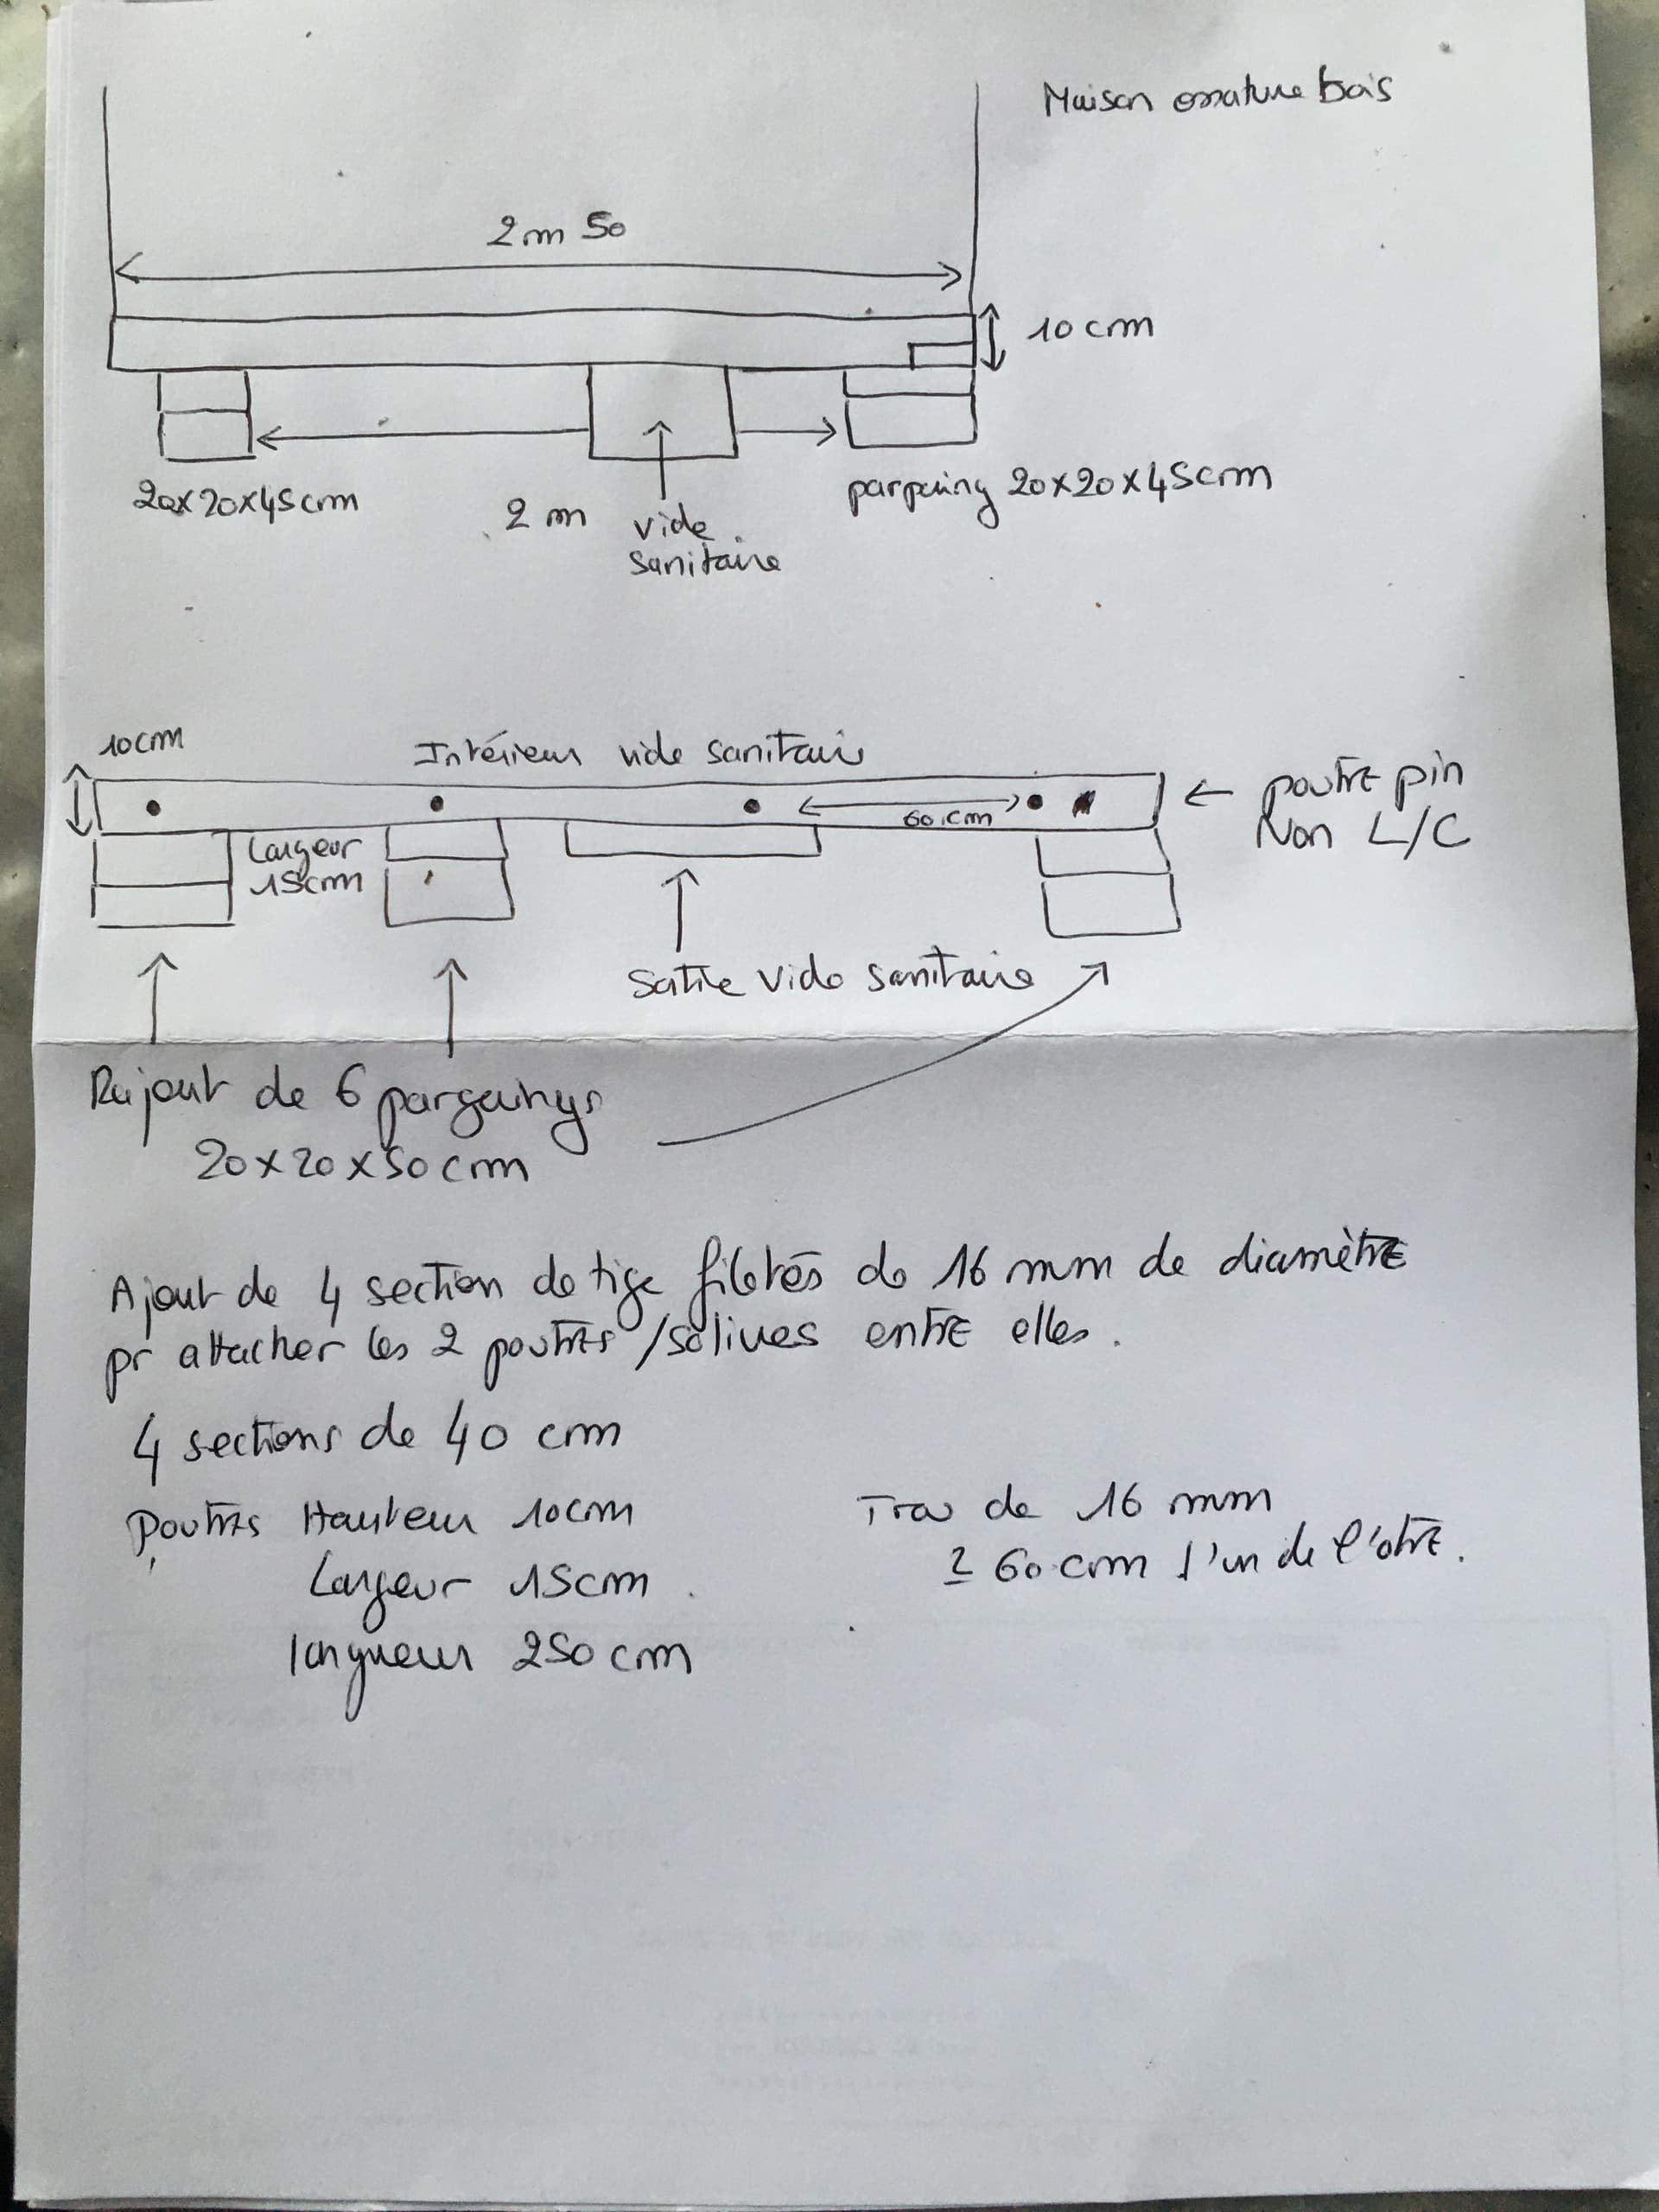 Maison ossature bois
2m 50
10 cm
20x20x45cm
2 m
vide
sanitaire
parpaing 20x20x45cm
10cm
Intérieur vide sanitaire
60 cm
← poutre pin
Non L/C
Largeur
15cm
Sortie vide sanitaire
Rajout de 6 parpaings
20x20x50cm
Ajout de 4 section de tige filetés de 16 mm de diamètre
pr attacher les 2 poutres /solives entre elles.
4 sections de 40 cm
Poutres Hauteur 10cm
Largeur 15cm
longueur 250cm
Trou de 16 mm
60 cm l'un de l'otre.